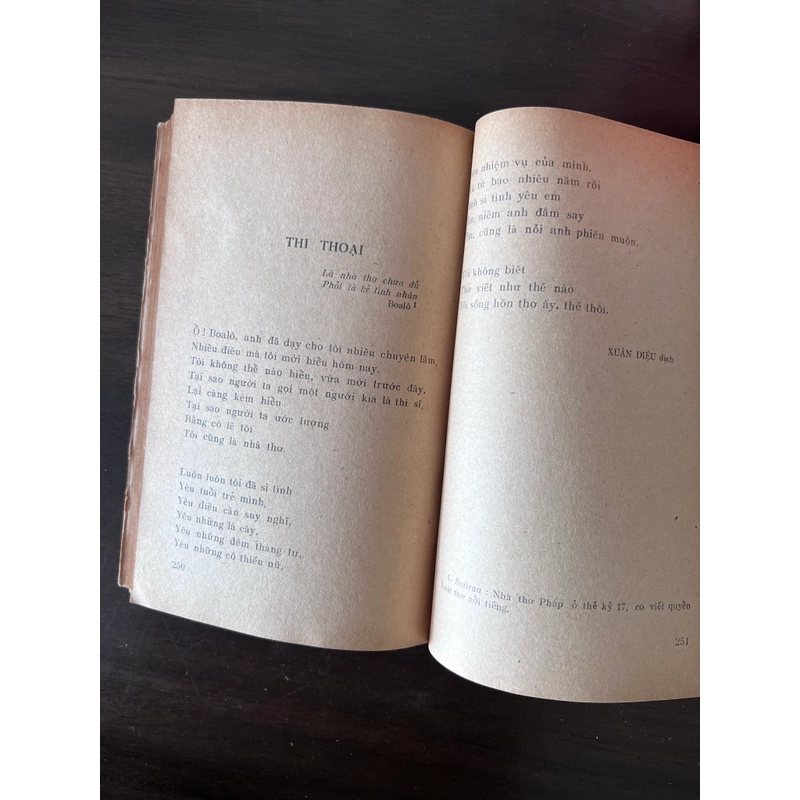 THI THOẠI
Là nhà thơ chưa đủ
Phải là kẻ tình nhân
Boalô 1
Ồ ! Boalô, anh đã dạy cho tôi nhiều chuyện lắm,
Nhiều điều mà tôi mới hiểu hôm nay.
Tôi không thể nào hiểu, vừa mới trước đây,
Tại sao người ta gọi một người kia là thi sĩ,
Lại càng kém hiểu
Tại sao người ta ước lượng
Rằng có lẽ tôi
Tôi cũng là nhà thơ.
Luôn luôn tôi đã si tình
Yêu tuổi trẻ mình,
Yêu điều cần suy nghĩ,
Yêu những lá cây,
Yêu những đêm tháng tư,
Yêu những cô thiếu nữ,
250
nhiệm vụ của mình.
từ bao nhiêu năm rồi
si tình yêu em
niềm anh đắm say
cũng là nỗi anh phiền muộn.
Tôi không biết
Thơ viết như thế nào
sống hồn thơ ấy, thế thôi.
XUÂN DIỆU dịch
1. Boileau : Nhà thơ Pháp ở thế kỷ 17, có viết quyển
Luật thơ nổi tiếng.
251